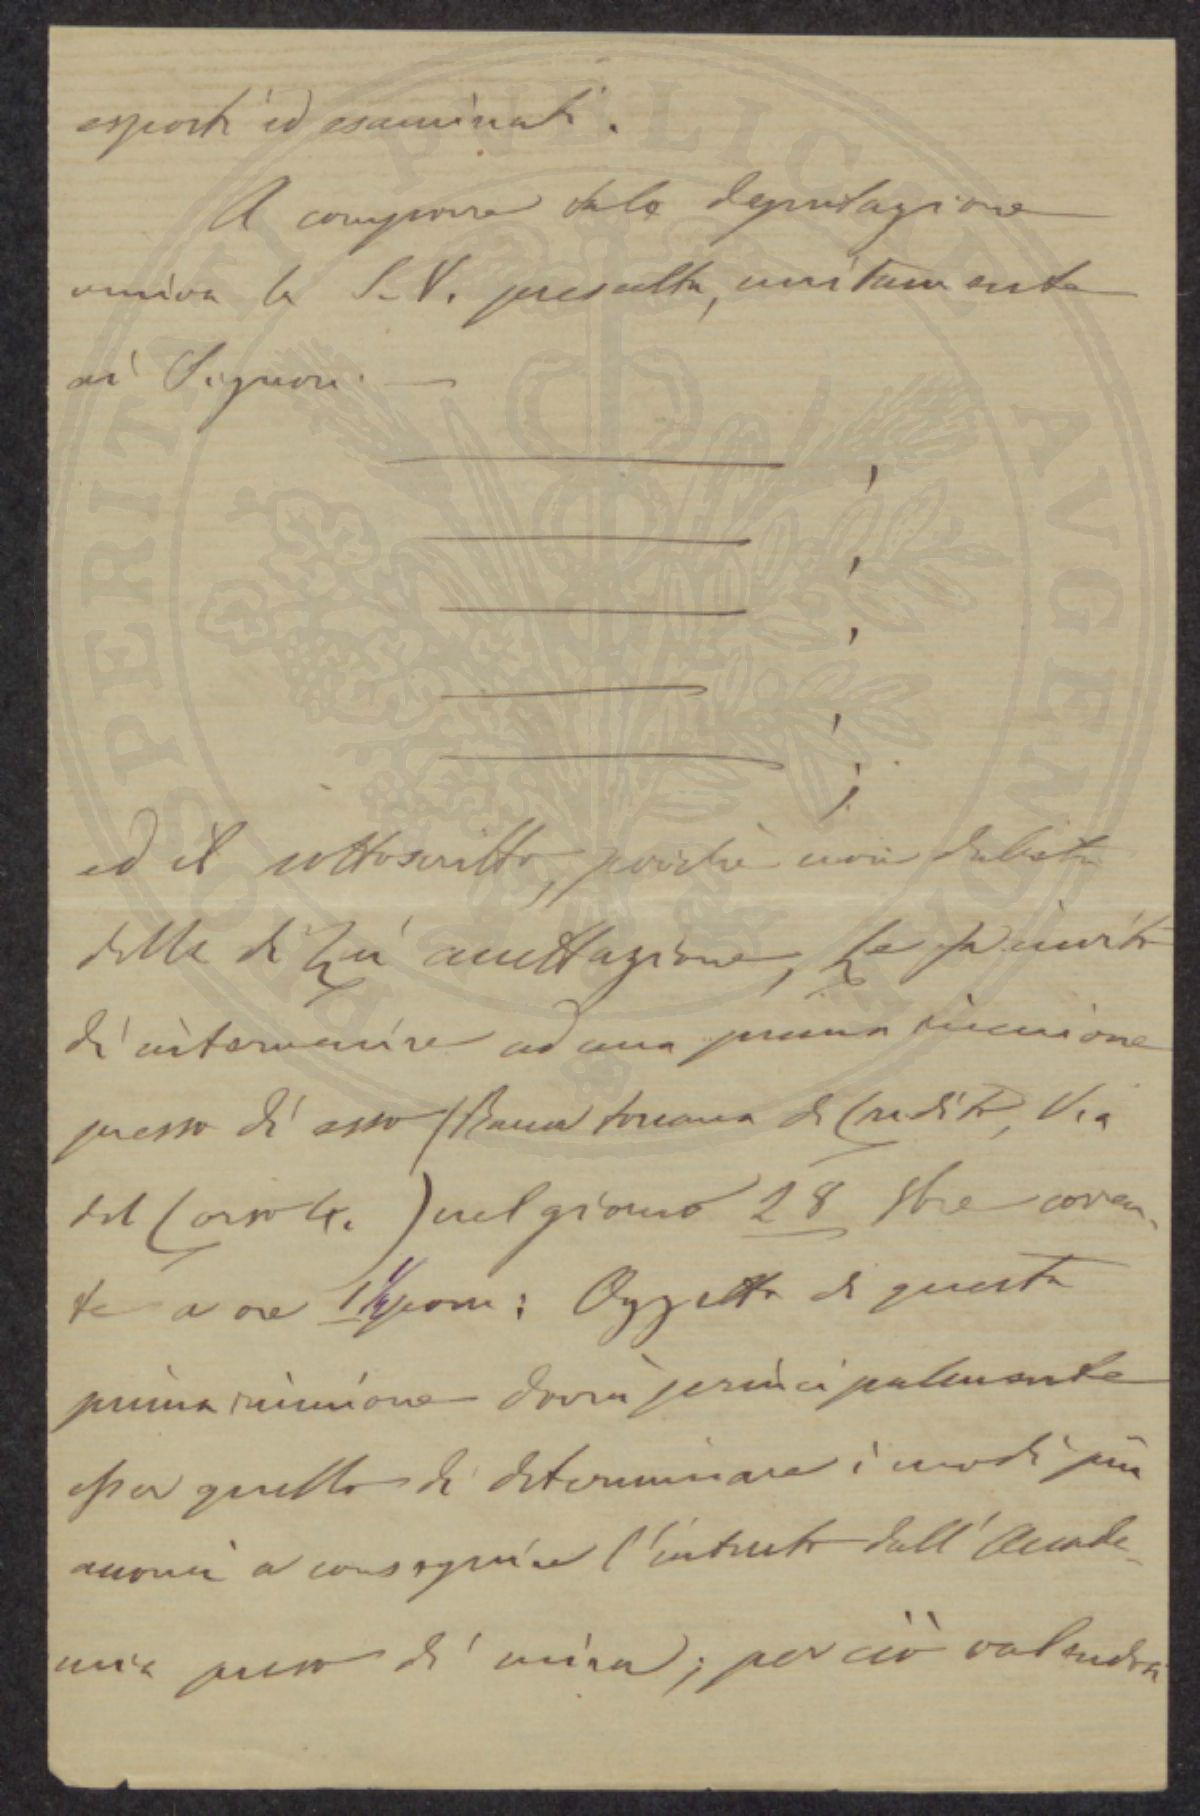 esposti ed esaminati.
A comporre tale deputazione
veniva la S. V. prescelta, unitamente
ai Signori —
,
,
,
,
;
ed il sottoscritto, poichè non dubita
della di Lei accettazione, La
d'intervenire ad una prima riunione
presso di esso (Banca toscana di Credito, Via
del Corso 4.) nel giorno 28 9bre corren-
te a ore 1 ½ pom: Oggetto di questa
prima riunione dovrà principalmente
esser quello di determinare i modi più
acconci a conseguire l'intento dall'Accade-
mia preso di mira; per ciò valendosi
PROSPERITATI PVBLICAE AVGENDAE